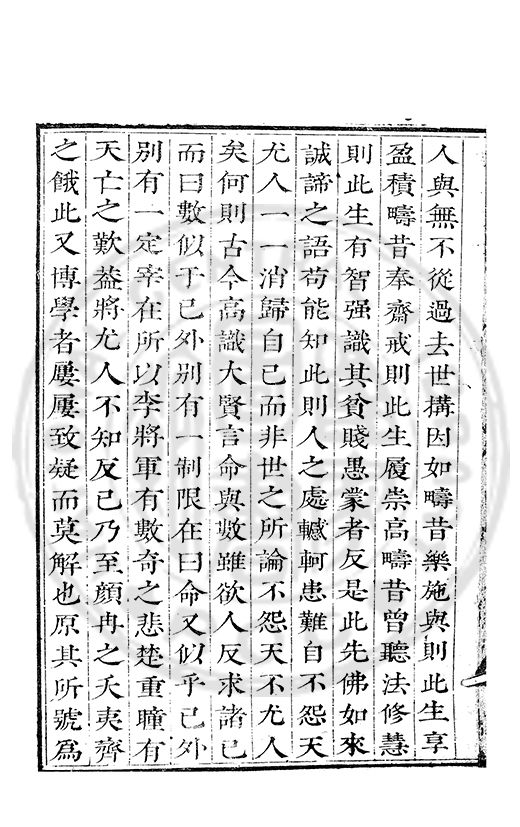 人與無不從過去世搆因如疇昔樂施與則此生享
盈積疇昔奉齋戒則此生履崇高疇昔曾聽法修慧
則此生有智强識其貧賤愚蒙者反是此先佛如來
誠諦之語苟能知此則人之處轗軻患難自不怨天
尤人一一消歸自己而非世之所論不怨天不尤人
矣何則古今高識大賢言命與數雖欲人反求諸已
而曰數似于已外别有一制限在曰命又似乎已外
别有一定宰在所以李將軍有數奇之悲楚重瞳有
天亡之歎葢將尤人不知反已乃至顔冉之夭夷齊
之餓此又博學者屢屢致疑而莫解也原其所號爲